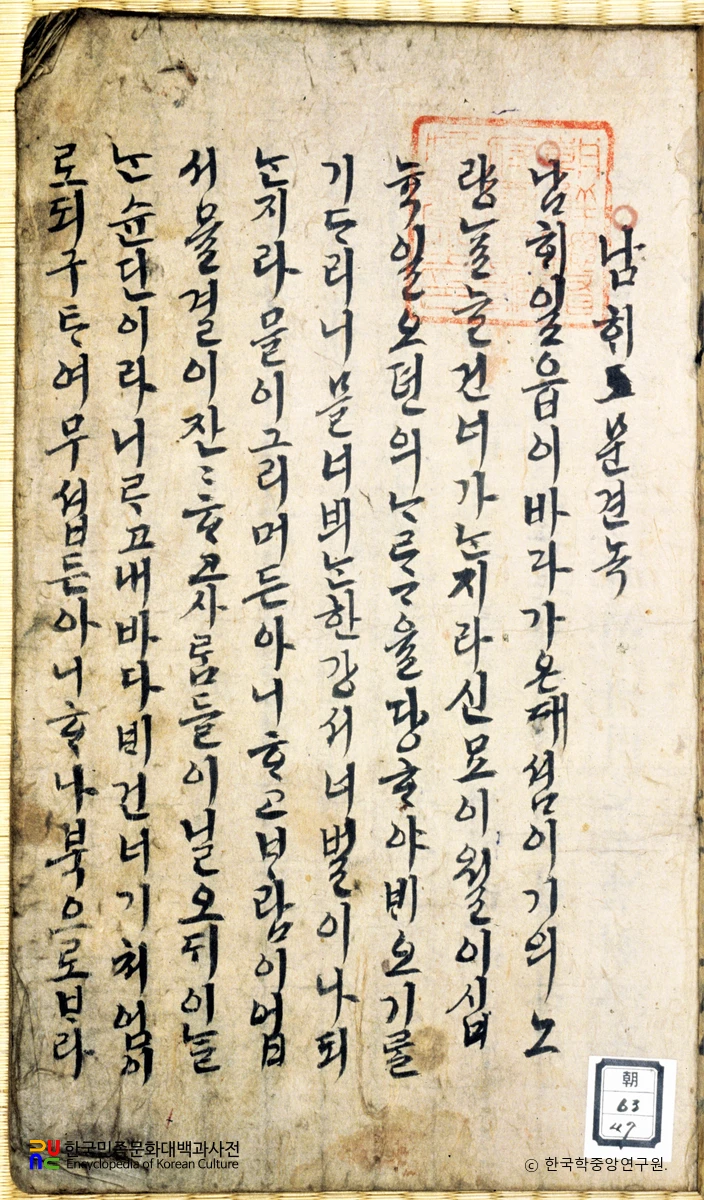 남ᄒᆡ도문견녹
남ᄒᆡ읍이바다가온대셤이기의노
량늘건너가ᄂᆞᆫ지라신묘이월이십
뉵일오면의ᄂᆞᄅᆞᄅᆞᆯ당ᄒᆞ야ᄇᆡ오기ᄅᆞᆯ
기ᄃᆞ리니믈너ᄇᆡᄂᆞᆫ한강서너벌이나되
ᄂᆞᆫ지라믈이그리머든아니ᄒᆞ고ᄇᆞ람이업
서믈결이잔〻ᄒᆞ고사ᄅᆞᆷ들이닐오ᄃᆡ이ᄂᆞᆯ
ᄂᆞᆫ슌단이라니ᄅᆞ고내바다ᄇᆡ건너기처엄이
로되구ᄐᆞ여무셥든아니ᄒᆞ나북으로ᄇᆞ라
朝
63
47
한국민족문화대백과사전
Encyclopedia of Korean Culture
© 한국학중앙연구원.